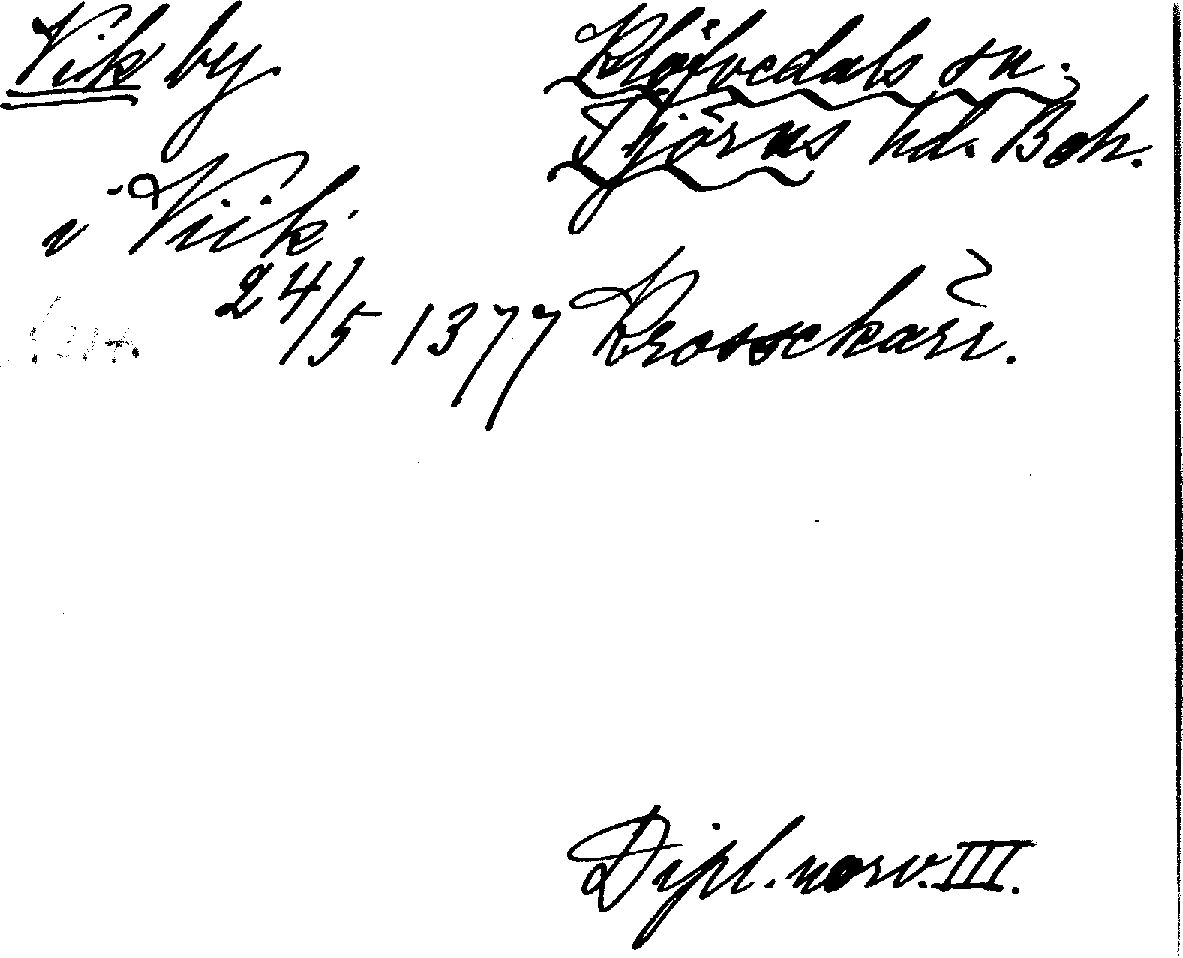 Vik by
Klöfvedals sn.
Tjörns hd. Boh.
i Viik
24/5 1377 Krossekärr.
Dipl. norv. III.